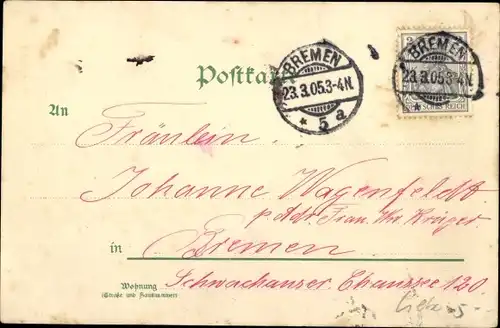 BREMEN
23.3.05.3-4N.
* 5 a
BREMEN
23.3.05.3-4N.
*
DEUTSCHES REICH
Postkarte
An
Fräulein
Johanne Wagenfeldt
p. Adr. Frau Wr. Krüger
in Bremen
Schwachauser Chaussee 120.
Wohnung
(Straße und Hausnummer)